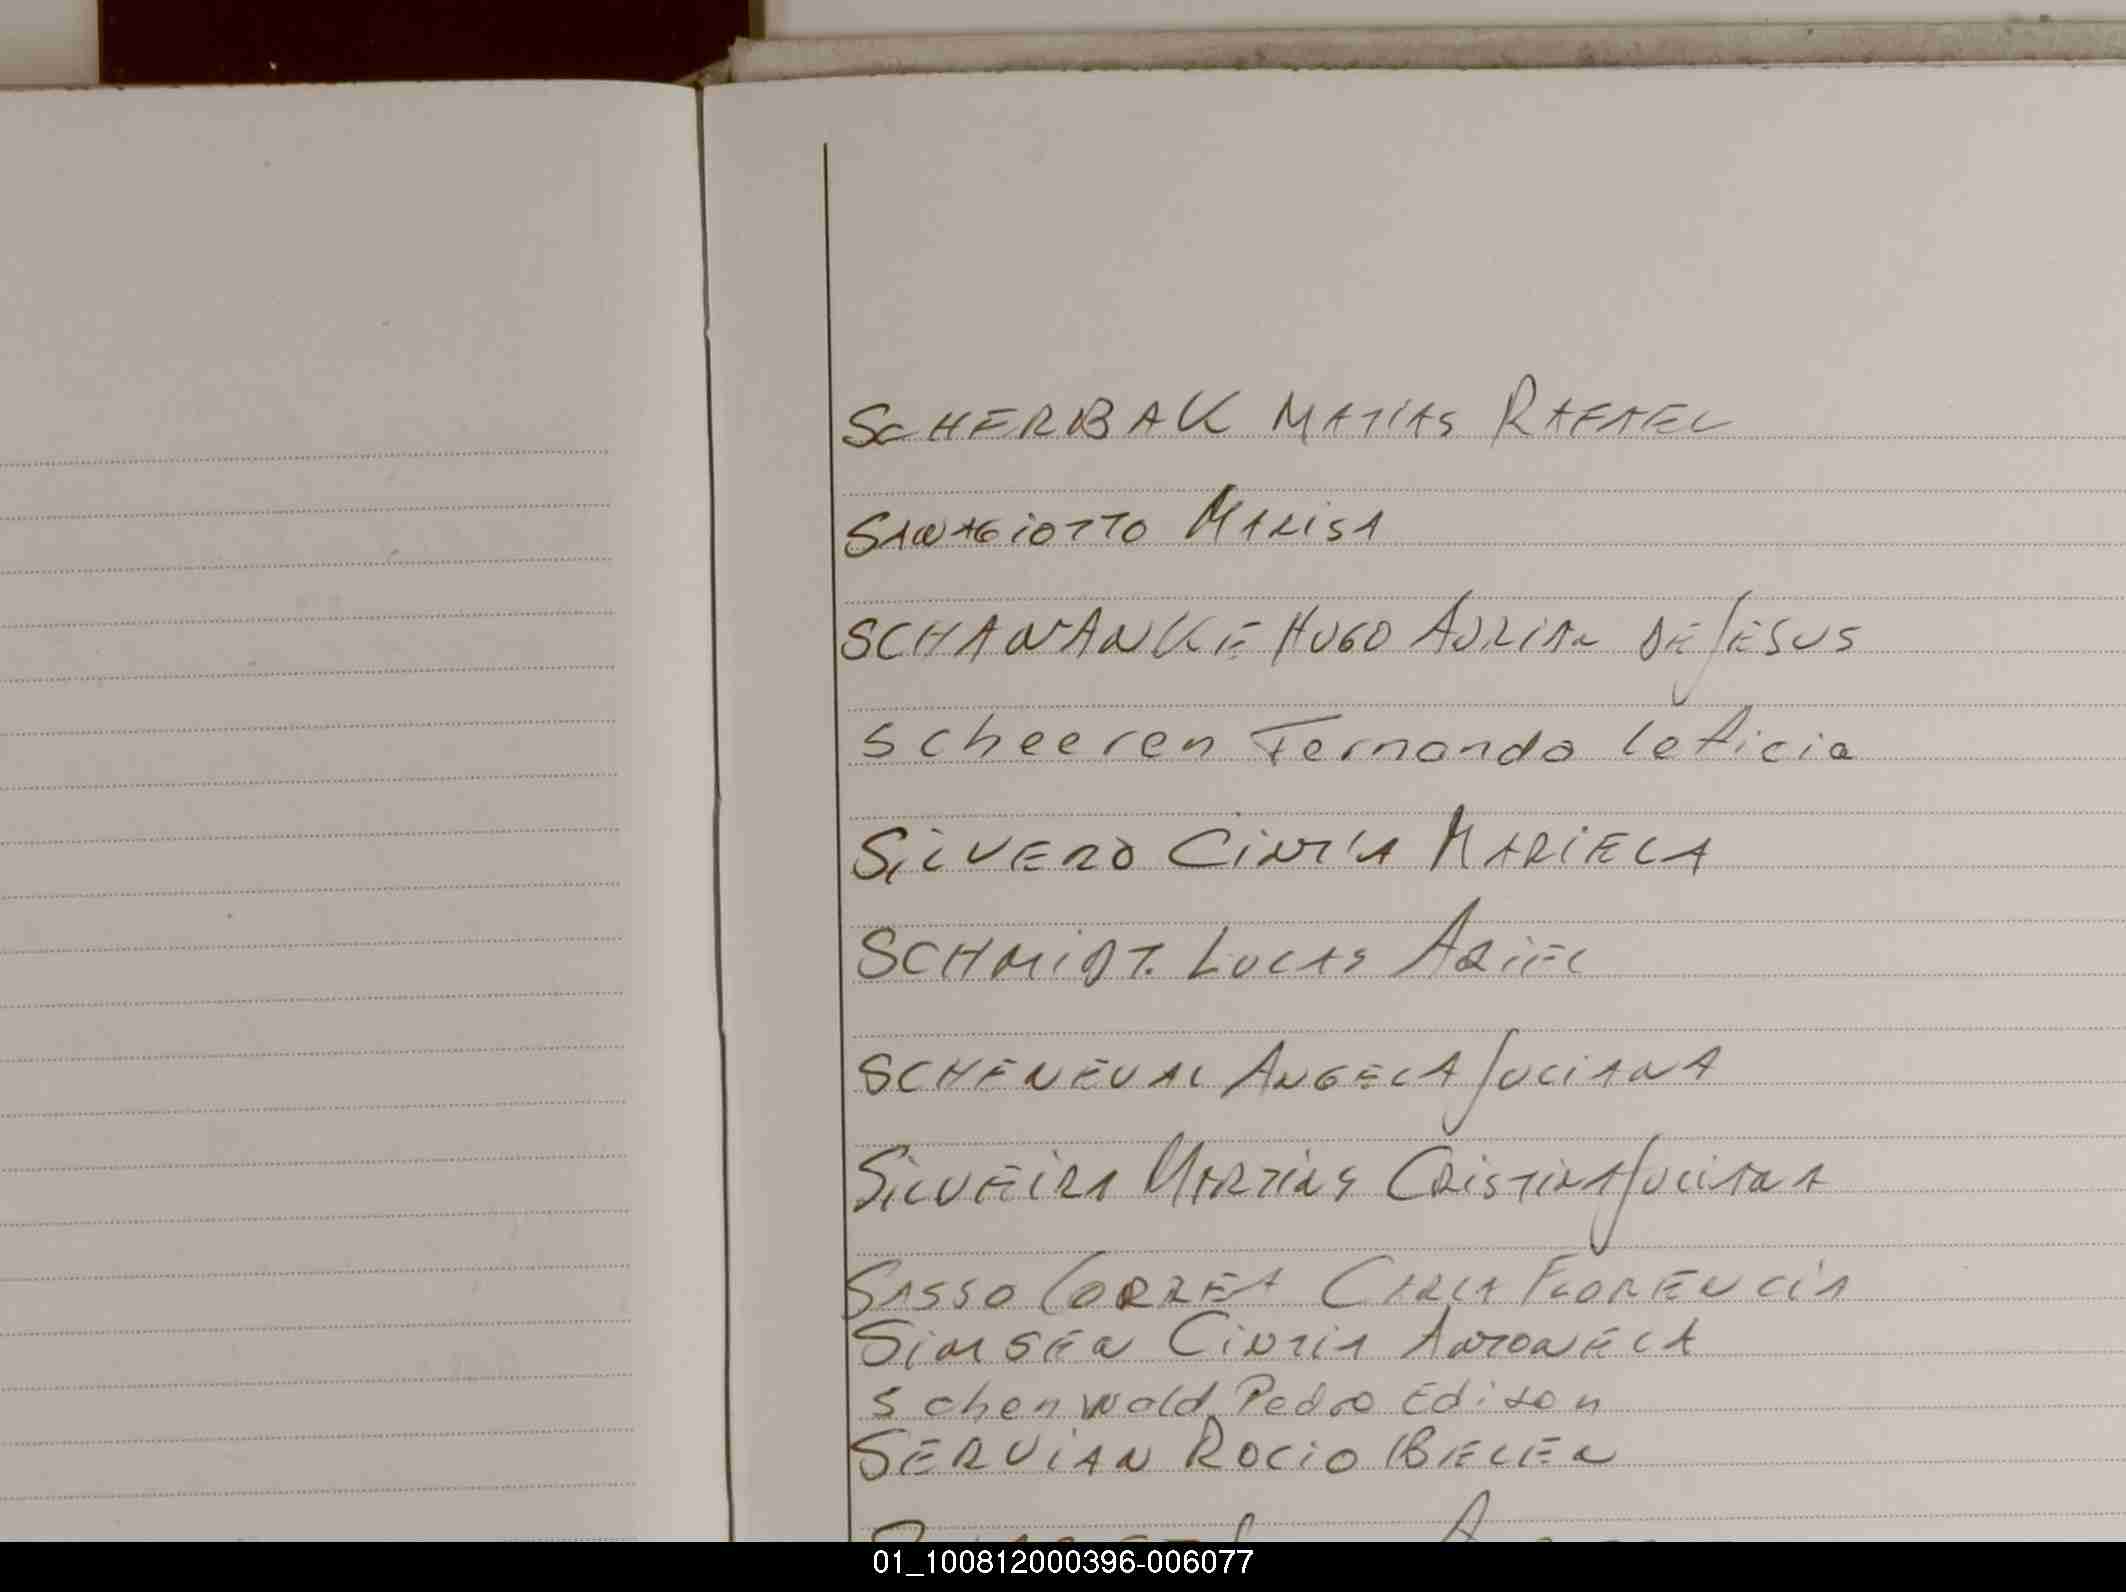 SCHERBAK MATIAS RAFAEL
SANAGIOTTO MARISA
SCHANANKE HUGO ADRIAN DE JESUS
Scheeren Fernanda Leticia
SILVERO CINTIA MARIELA
SCHMIDT. LUCAS ARIEL
SCHENEVAL ANGELA JULIANA
SILVEIRA MARTINS CRISTINA JULIANA
SASSO CORREA CARLA FLORENCIA
SIMSEN CINTIA ANTONELA
Schenwald Pedro Edison
SERVIAN ROCIO BELEN
01_100812000396-006077